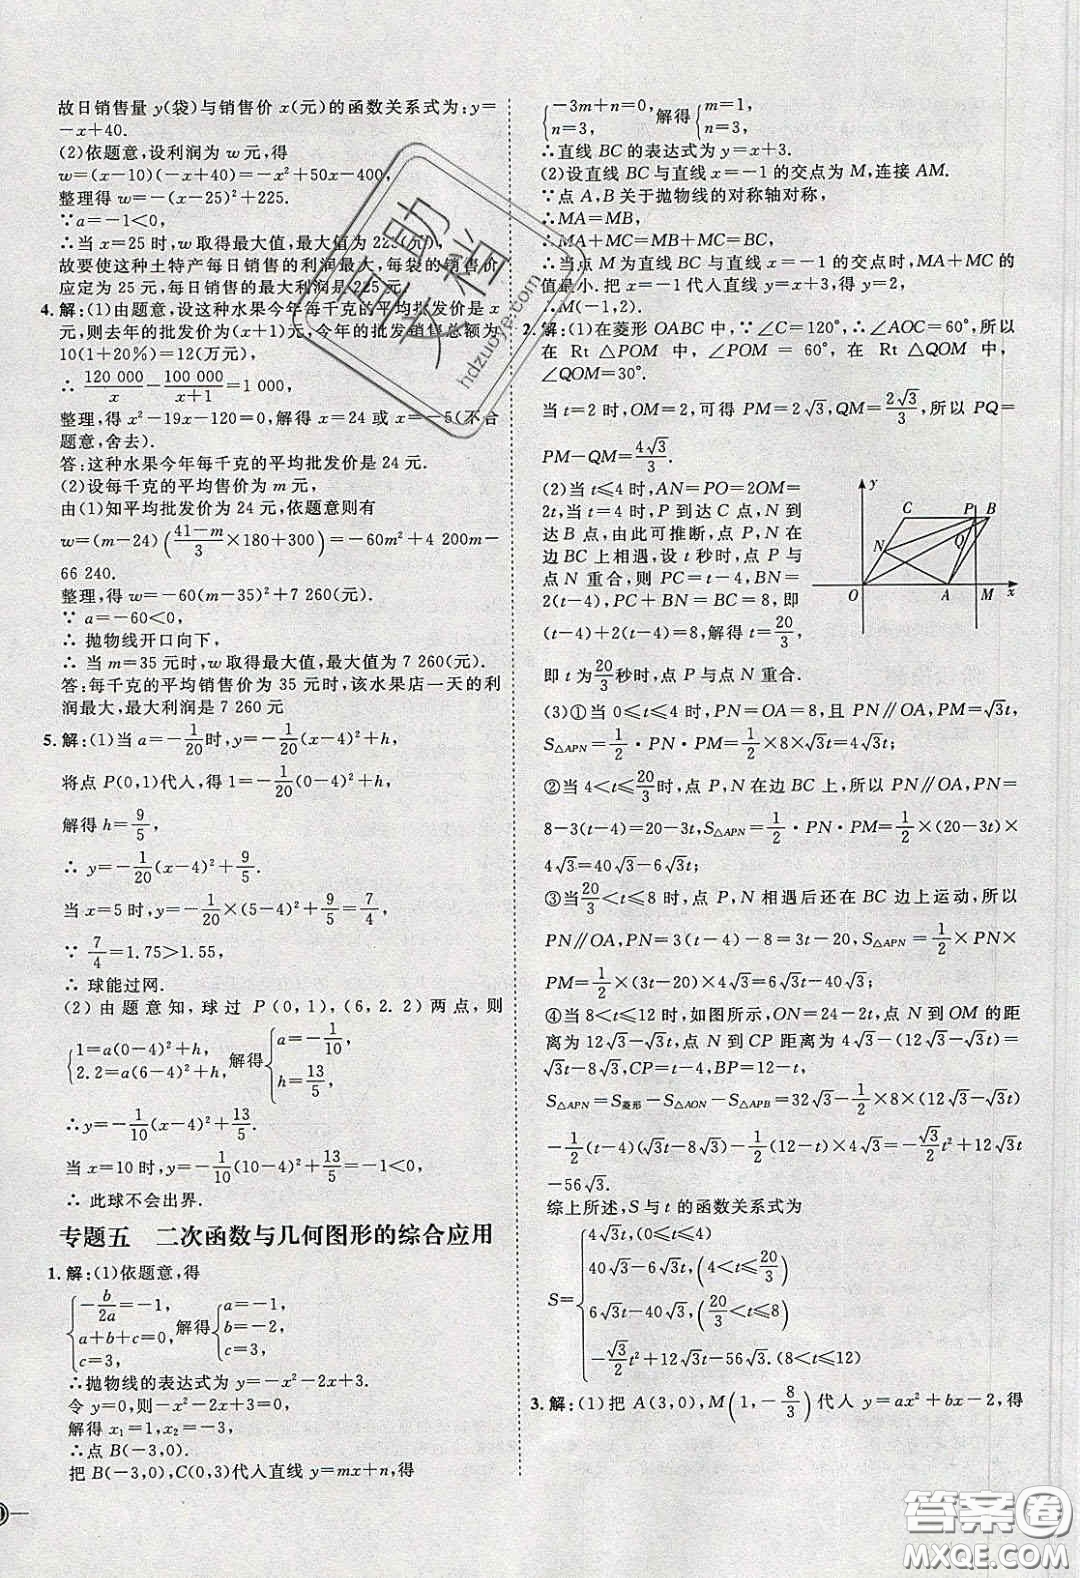 故日销售量 y(袋)与销售价 x(元)的函数关系式为:y=
-x+40.
(2)依题意,设利润为 w 元,得
w=(x-10)(-x+40)=-x²+50x-400,
整理得 w=-(x-25)²+225.
∵a=-1<0,
∴当 x=25 时,w 取得最大值,最大值为 225(元),
故要使这种土特产每日销售的利润最大,每袋的销售价
应定为 25 元,每日销售的最大利润是 225 元.
4. 解:(1)由题意,设这种水果今年每千克的平均批发价是 x
元,则去年的批发价为(x+1)元,今年的批发销售总额为
10(1+20%)=12(万元),
∴ 120 000/x - 100 000/(x+1) = 1 000,
整理,得 x²-19x-120=0,解得 x=24 或 x=-5(不合
题意,舍去).
答:这种水果今年每千克的平均批发价是 24 元.
(2)设每千克的平均销售价为 m 元,
由(1)知平均批发价为 24 元,依题意则有
w=(m-24)((41-m)/3×180+300)=-60m²+4 200m-
66 240.
整理,得 w=-60(m-35)²+7 260(元).
∵ a=-60<0,
∴ 抛物线开口向下,
∴ 当 m=35 元时,w 取得最大值,最大值为 7 260(元).
答:每千克的平均销售价为 35 元时,该水果店一天的利
润最大,最大利润是 7 260 元
5. 解:(1)当 a=-1/20时,y=-1/20(x-4)²+h,
将点 P(0,1)代入,得 1=-1/20(0-4)²+h,
解得 h=9/5,
∴ y=-1/20(x-4)²+9/5.
当 x=5 时,y=-1/20×(5-4)²+9/5=7/4,
∵ 7/4=1.75>1.55,
∴ 球能过网.
(2)由题意知,球过 P(0,1),(6,2.2)两点,则
{1=a(0-4)²+h, 2.2=a(6-4)²+h, 解得 {a=-1/10, h=13/5,
∴y=-1/10(x-4)²+13/5.
当 x=10 时,y=-1/10(10-4)²+13/5=-1<0,
∴ 此球不会出界.
专题五 二次函数与几何图形的综合应用
1. 解:(1)依题意,得
{-b/2a=-1, a+b+c=0, c=3, 解得{a=-1, b=-2, c=3,
∴抛物线的表达式为 y=-x²-2x+3.
令 y=0,则-x²-2x+3=0,
解得 x₁=1,x₂=-3.
∴点 B(-3,0).
把 B(-3,0),C(0,3)代入直线 y=mx+n,得
{-3m+n=0, n=3, 解得{m=1, n=3,
∴直线 BC 的表达式为 y=x+3.
(2)设直线 BC 与直线 x=-1 的交点为 M,连接 AM.
∵点 A,B 关于抛物线的对称轴对称,
∴MA=MB,
∴MA+MC=MB+MC=BC,
∴当点 M 为直线 BC 与直线 x=-1 的交点时,MA+MC 的
值最小.把 x=-1 代入直线 y=x+3,得 y=2,
∴M(-1,2).
2. 解:(1)在菱形 OABC 中,∵∠C=120°,∴∠AOC=60°,所以
在 Rt △POM 中,∠POM = 60°,在 Rt △QOM 中,
∠QOM=30°.
当 t=2 时,OM=2,可得 PM=2√3,QM=2√3/3,所以 PQ=
PM-QM=4√3/3.
(2)当 t≤4 时,AN=PO=2OM=
2t,当 t=4 时,P 到达 C 点,N 到
达 B 点,由此可推断,点 P,N 在
边 BC 上相遇,设 t 秒时,点 P 与
点 N 重合,则 PC=t-4,BN=
2(t-4),PC+BN=BC=8,即
(t-4)+2(t-4)=8,解得 t=20/3,
即 t 为20/3秒时,点 P 与点 N 重合.
y
C P B
N Q
O A M x
(3)①当 0≤t≤4 时,PN=OA=8,且 PN∥OA,PM=√3t,
S△APN=1/2·PN·PM=1/2×8×√3t=4√3t;
②当 4<t≤20/3时,点 P,N 在边 BC 上,所以 PN∥OA,PN=
8-3(t-4)=20-3t,S△APN=1/2·PN·PM=1/2×(20-3t)×
4√3=40√3-6√3t;
③当20/3<t≤8 时,点 P,N 相遇后还在 BC 边上运动,所以
PN∥OA,PN=3(t-4)-8=3t-20,S△APN=1/2×PN×
PM=1/2×(3t-20)×4√3=6√3t-40√3;
④当 8<t≤12 时,如图所示,ON=24-2t,点 N 到 OM 的距
离为 12√3-√3t,点 N 到 CP 距离为 4√3-(12√3-√3t)=
√3t-8√3,CP=t-4,BP=12-t,
S△APN=S菱形-S△AON-S△CPN-S△APB=32√3-1/2×8×(12√3-√3t)
-1/2(t-4)(√3t-8√3)-1/2(12-t)×4√3=-√3/2t²+12√3t
-56√3.
综上所述,S 与 t 的函数关系式为
S={4√3t,(0≤t≤4)
40√3-6√3t,(4<t≤20/3)
6√3t-40√3,(20/3<t≤8)
-√3/2t²+12√3t-56√3.(8<t≤12)
3. 解:(1)把 A(3,0),M(1,-8/3)代入 y=ax²+bx-2,得
互助文档
hdzuoye.com
答案圈
MXQE.COM